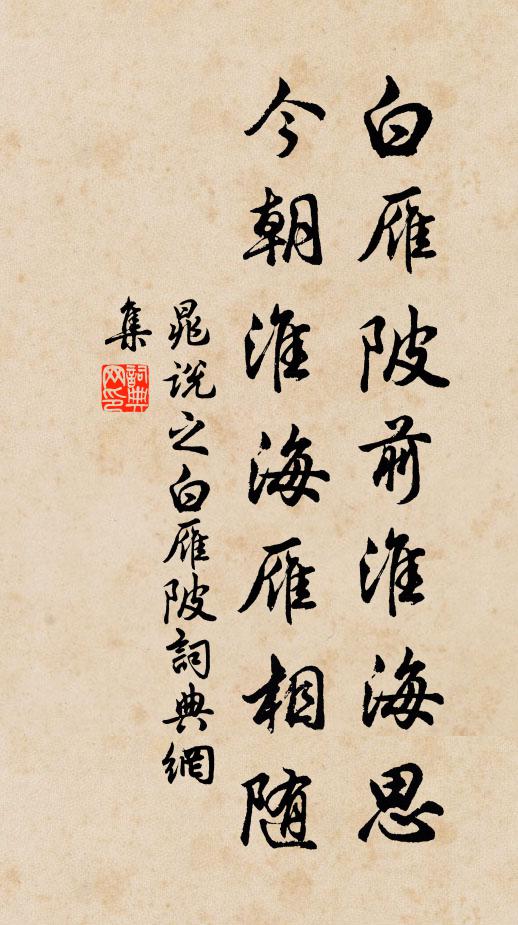 白雁陂前淮海思
今朝淮海雁相随
晁说之白雁陂詞典網
集
詞典网印